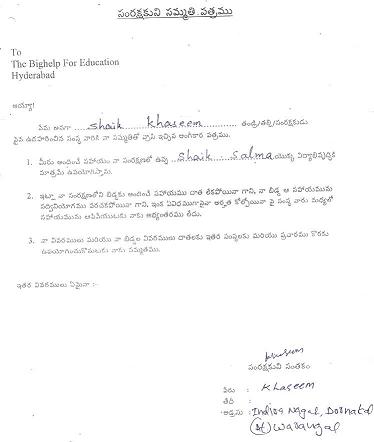 సంరక్షకుని సమ్మతి పత్రము
To
The Bighelp For Education
Hyderabad
అయ్యా!
నేను అనగా ...... Shaik Khaseem ...... తండ్రి/తల్లి/సంరక్షకుడు
పైన ఉదహరించిన సంస్థ వారికి నా సమ్మతితో వ్రాసి ఇచ్చిన అంగీకార పత్రము.
1. మీరు అందించే సహాయం నా సంరక్షణలో ఉన్న Shaik. Salma యొక్క విద్యాభివృద్ధికి
మాత్రమే ఉపయోగిస్తాను.
2. ఇట్లా నా సంరక్షణలోని బిడ్డకు అందించే సహాయము దాత లేకపోయినా గాని, నా బిడ్డ ఆ సహాయమును
సద్వినియోగము పరచకపోయినా గాని, ఇంక ఏవిధముగానైనా అర్హత కోల్పోయినా పై సంస్థ వారు మధ్యలో
సహాయమును ఆపివేయుటకు నాకు అభ్యంతరము లేదు.
3. నా వివరములు మరియు నా బిడ్డల వివరములు దాతలకు ఇతర సంస్థలకు మరియు ప్రచారము కొరకు
ఉపయోగించుకొనుటకు నాకు సమ్మతము.
ఇతర వివరములు ఏమైనా :-
Khaseem
సంరక్షకుని సంతకం
పేరు : Khaseem
తేది :
అడ్రసు : Indira Nagar,
(Dt) Warangal